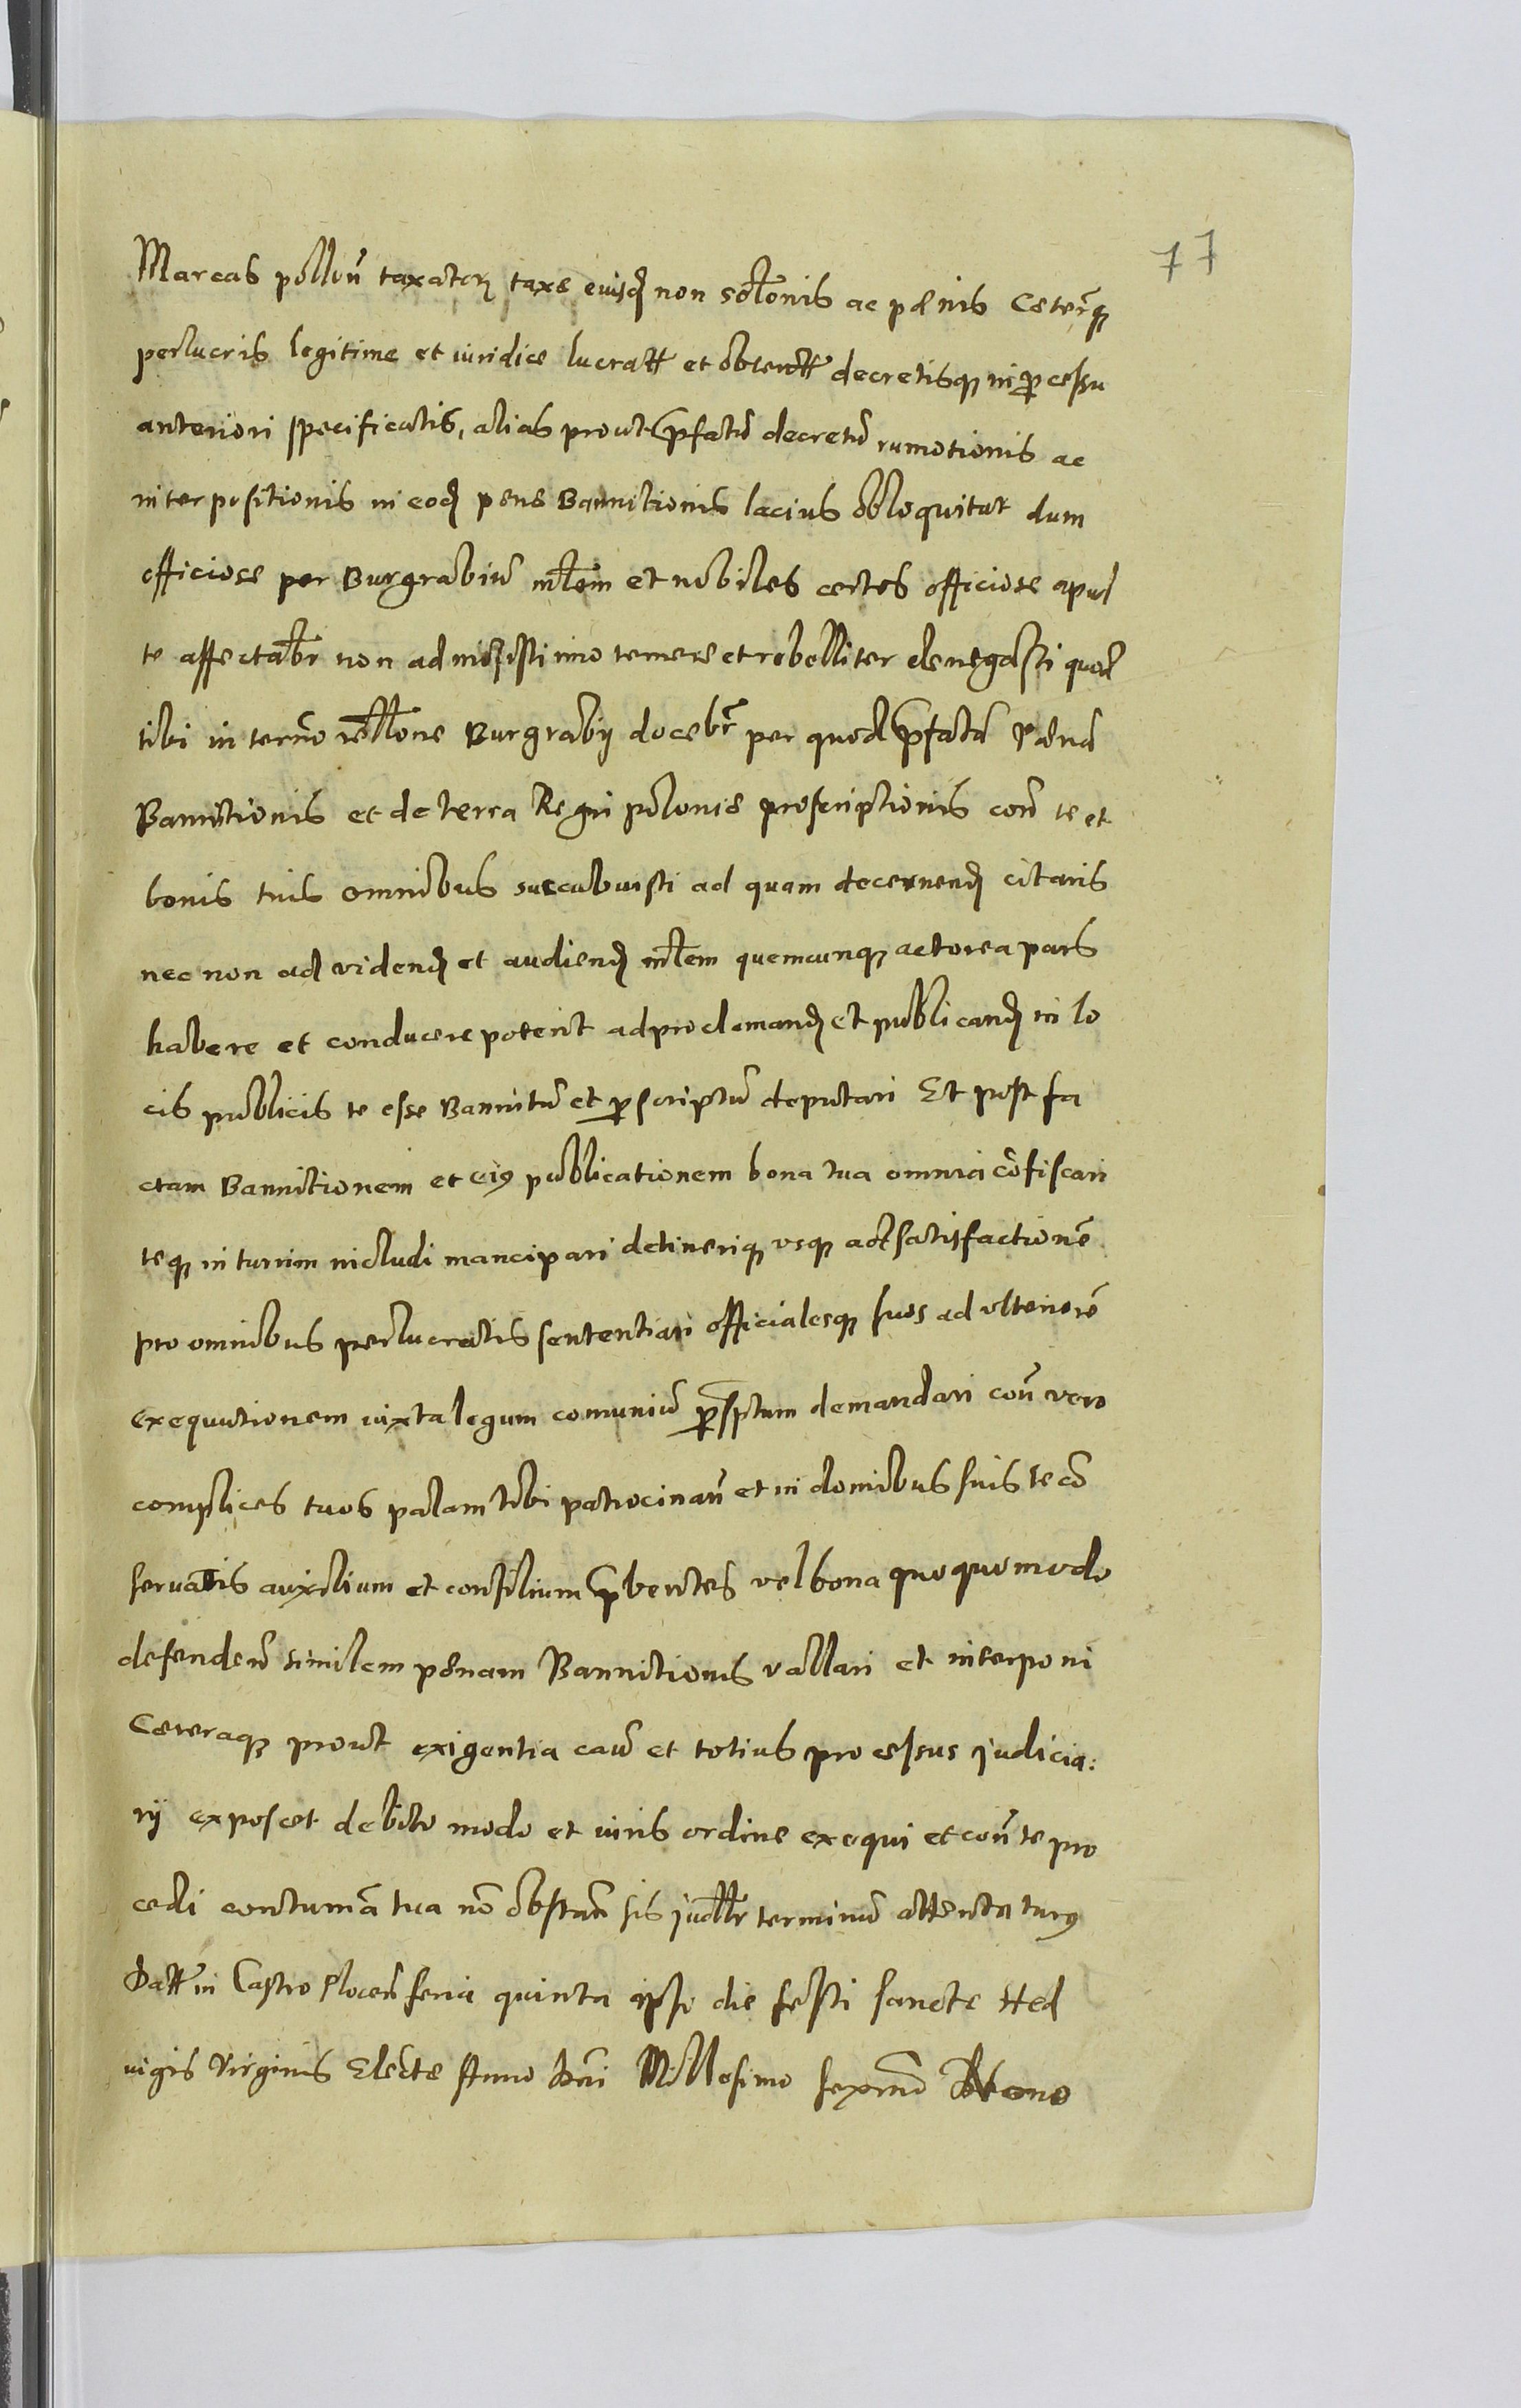 77
Marcas pollon̄ taxatorꝫ taxe eiusdꝫ non sol̄onis ac pænis Ceterisqꝫ
perlucris legitime et iuridice lucratt et obtentt decretisqꝫ in ꝓcessu
anteriori specificatis, alias prout p̄fatū decretū rumotionis ac
interpositionis in eodꝫ pene Bannitionis lacius obloquitur dum
officiose per Burgrabiū ml̄em et nobiles certos officiose apud
te affectabr̄ non admisisti imo temere et rebelliter denegasti quod
tibi in termō rel̄lone Burgrabij docebr̄ per quod p̄fatā Pænā
Bannitionis et de terra Regni polonie proscriptionis con̄ te et
bonis tuis omnibus succubuisti ad quam decernendꝫ citaris
nec non ad videndꝫ et audiendꝫ ml̄em quemcunqꝫ actorea pars
habere et conducere poterit ad proclamandꝫ et publicandꝫ in lo
cis publicis te esse Bannitū et ꝓscriptū deputari Et post fa
ctam Bannitionem et eiꝰ publicationem bona tua omnia cōfiscari
teqꝫ in turrim includi mancipari detineriqꝫ vsqꝫ ad satisfactionē
pro omnibus perlucratis sententiari officialesqꝫ suos ad vlteriorē
exequutionem iuxta legum comuniū p̄sptum demandari con̄ vero
complices tuos palam tibi patrocinan̄ et in domibus suis te cō
servatis auxilium et consilium p̄bentes vel bona quoquomodo
defenden̄ similem pænam Bannitionis vallari et interponi
Ceteraqꝫ prout exigentia caū et totius processus judicia:
rij exposcet debito modo et iuris ordine exequi et con̄ te pro
cedi contumā tua nō obstan̄ sis judll̄r terminū attentaturꝰ
Datt̄ in Castro Plocen̄ feria quinta ipso die festi sancte Hed
vigis Virginis Electe Anno Dn̄i Millesimo sexmō Nono